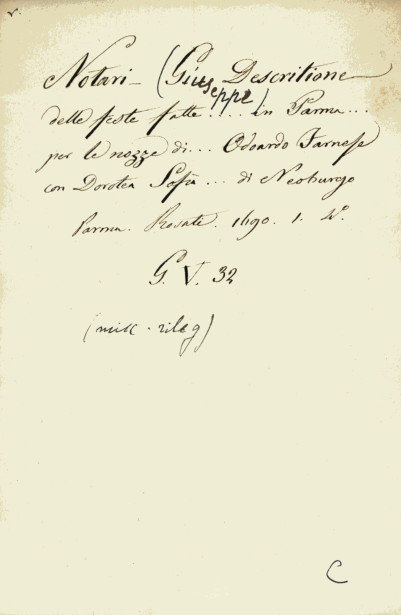 v.
Notari - (Giuseppe) Descritione
delle feste fatte .... in Parma ...
per le nozze di ... Odoardo Farnese
con Dorotea Sofia ... di Neoburgo
Parma. Rosati. 1690. 1. 4º.
G. V. 32
(misc. rileg)
C